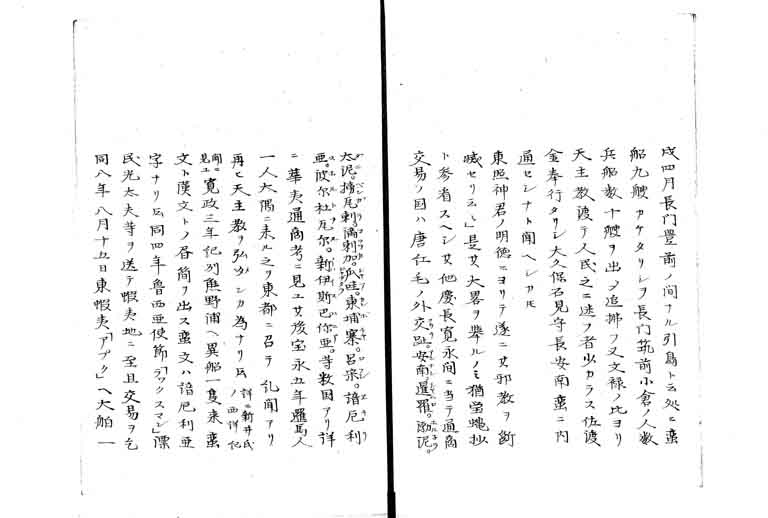 戌四月長門豊前ノ間ナル引島ト云処ニ蛮
船九艘カヽタリシヲ長門筑前小倉ノ人数
兵船数十艘ヲ出シ追拂フ又文禄ノ比ヨリ
天主教渡テ人民之ニ迷フ者少カラス佐渡
金奉行タリシ大久保石見守長安南蛮ニ内
通セシナト聞ヘシカ𪜈
東照神君ノ明徳ニヨリテ遂ニ其邪教ヲ断
滅セリ云々是其大畧ヲ挙ルノミ猶當蝇抄
ト参省スヘシ其他慶長寛永間ニ当テ通商
交易ノ国ハ唐仁毛ノ外交趾。安南暹羅。渤泥。
太泥。榜葛剌満剌加。瓜哇東埔寨。呂宋。諳厄利
亜。波尓杜瓦尓。新伊斯巴你亜。等数国アリ詳
ニ華夷通商考ニ見ユ其後宝永五年羅馬人
一人大隅ニ来ル之ヲ東都ニ召テ乱聞アリ
再ヒ天主教ヲ弘めンカ為ナリ氏
寛政三年紀列熊野浦ヘ異船一隻来蛮
文ト漢文トノ呑筒ヲ出ス蛮文ハ諳厄利亜
字ナリ云同四年魯西亜使節「ラックスマン」漂
民光太夫等ヲ送テ蝦夷地ニ至且交易ヲ乞
同八年八月十五日東蝦夷「アブタ」ヘ大舶一